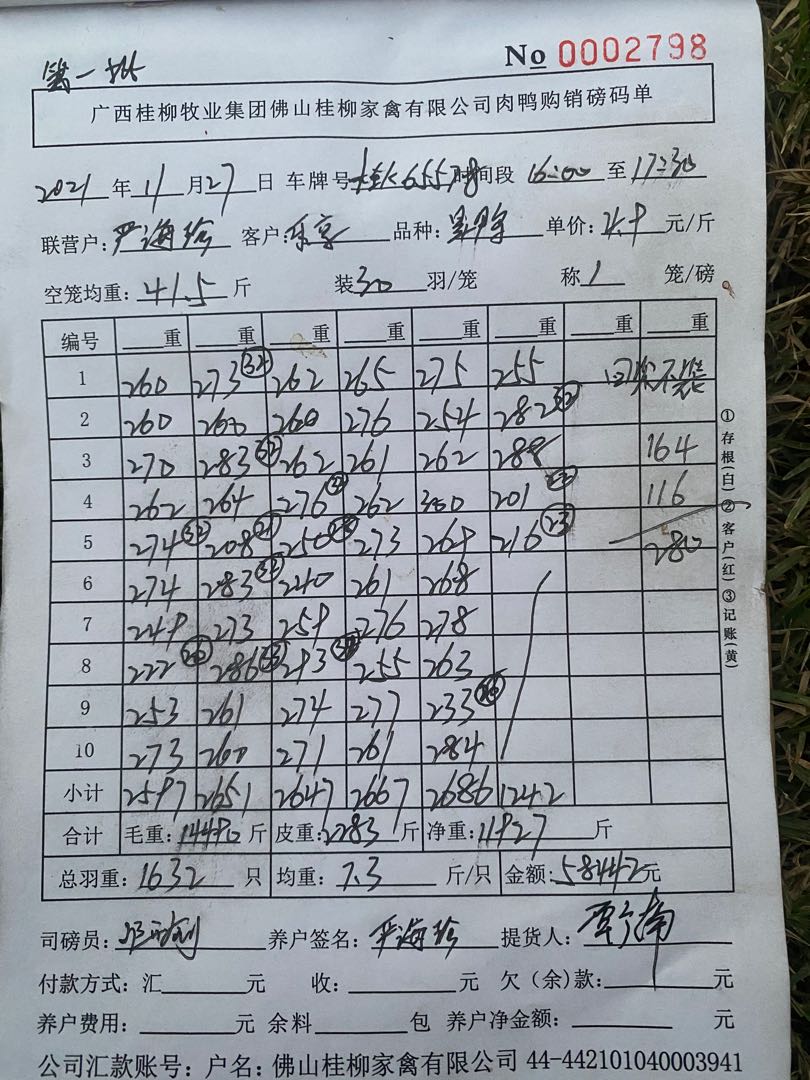 第一批
No 0002798
广西桂柳牧业集团佛山桂柳家禽有限公司肉鸭购销磅码单
2021 年 11 月 27 日 车牌号 65578 时间段 16:00 至 17:30
联营户: 严海珍 客户: 乐享 品种: 单价: 4.9 元/斤
空笼均重: 41.5 斤 装 30 羽/笼 称 1 笼/磅
编号 重 重 重 重 重 重 重 重
1 260 273 32 262 265 275 255 回家不装
2 260 260 260 276 254 282 32
3 270 283 32 262 261 262 288 164
4 262 264 276 262 300 201 116
5 274 32 208 250 273 269 216 23 280
6 274 283 32 240 261 268
7 249 273 259 276 278
8 222 286 293 255 263
9 253 261 274 277 233 26
10 273 260 271 261 284
小计 2597 2651 2647 2667 2686 1242
合计 毛重: 14490 斤 皮重: 2283 斤 净重: 11927 斤
总羽重: 1632 只 均重: 7.3 斤/只 金额: 58442 元
司磅员: 养户签名: 严海珍 提货人:
付款方式: 汇 元 收: 元 欠(余)款: 元
养户费用: 元 余料 包 养户净金额: 元
公司汇款账号: 户名: 佛山桂柳家禽有限公司 44-442101040003941
①存根(白)②客户(红)③记账(黄)